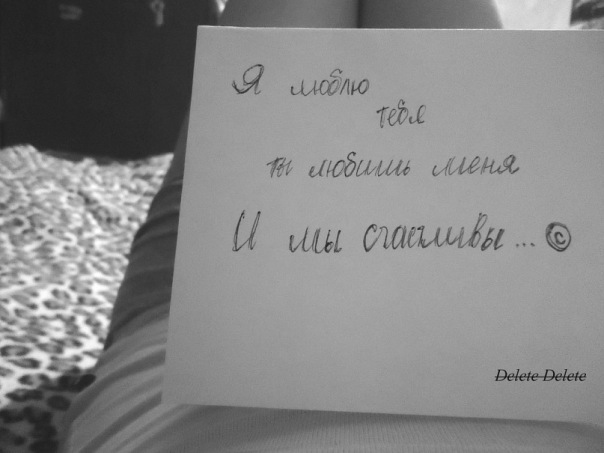 Я люблю
тебя
ты любишь меня
И мы счастливы... ©
Delete Delete